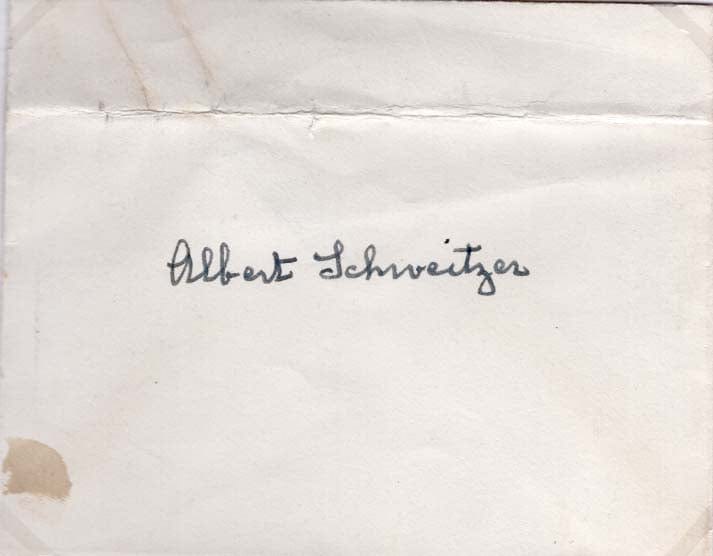 Albert Schweitzer